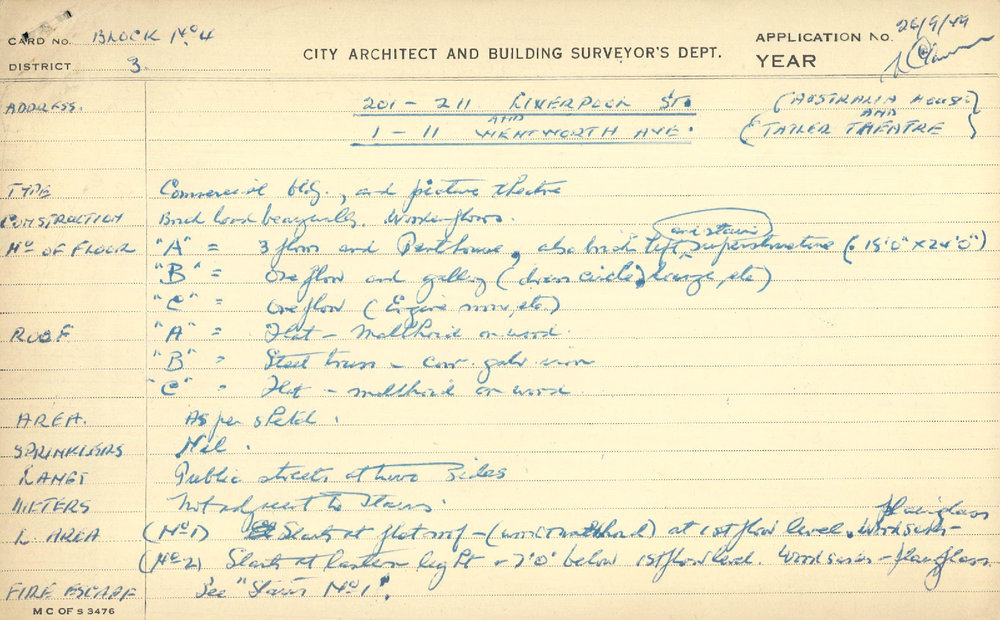 CARD NO. BLOCK No 4
DISTRICT 3
CITY ARCHITECT AND BUILDING SURVEYOR'S DEPT.
APPLICATION No. 26/9/49
YEAR
ADDRESS. 201 - 211 LIVERPOOL ST. (AUSTRALIA HOUSE)
AND AND
1 - 11 WENTWORTH AVE. (TATLER THEATRE)
TYPE Commercial bldg., and picture theatre
CONSTRUCTION Brick load bearing walls. Wooden floors.
and stairs
No OF FLOOR "A" = 3 floors and Penthouse, also brick lift superstructure (15'0" x 24'0")
"B" = One floor and gallery (dress circle, lounge, etc)
"C" = One floor (Engine room, etc.)
ROOF "A" = Flat - malthoid on wood.
"B" = Steel truss - corr. galv. iron
"C" = Flat - malthoid on wood.
AREA. As per sketch.
SPRINKLERS Nil.
LANES Public streets at two sides
METERS Not adjacent to stairs.
plainglass
L. AREA (No 1) Starts at flat roof - (wood malthoid) at 1st floor level. Wood sashes -
(No 2) Starts at lantern light - 7'0" below 1st floor level. Wood sashes - plainglass.
FIRE ESCAPE See "Stairs No 1".
M C OF S 3476